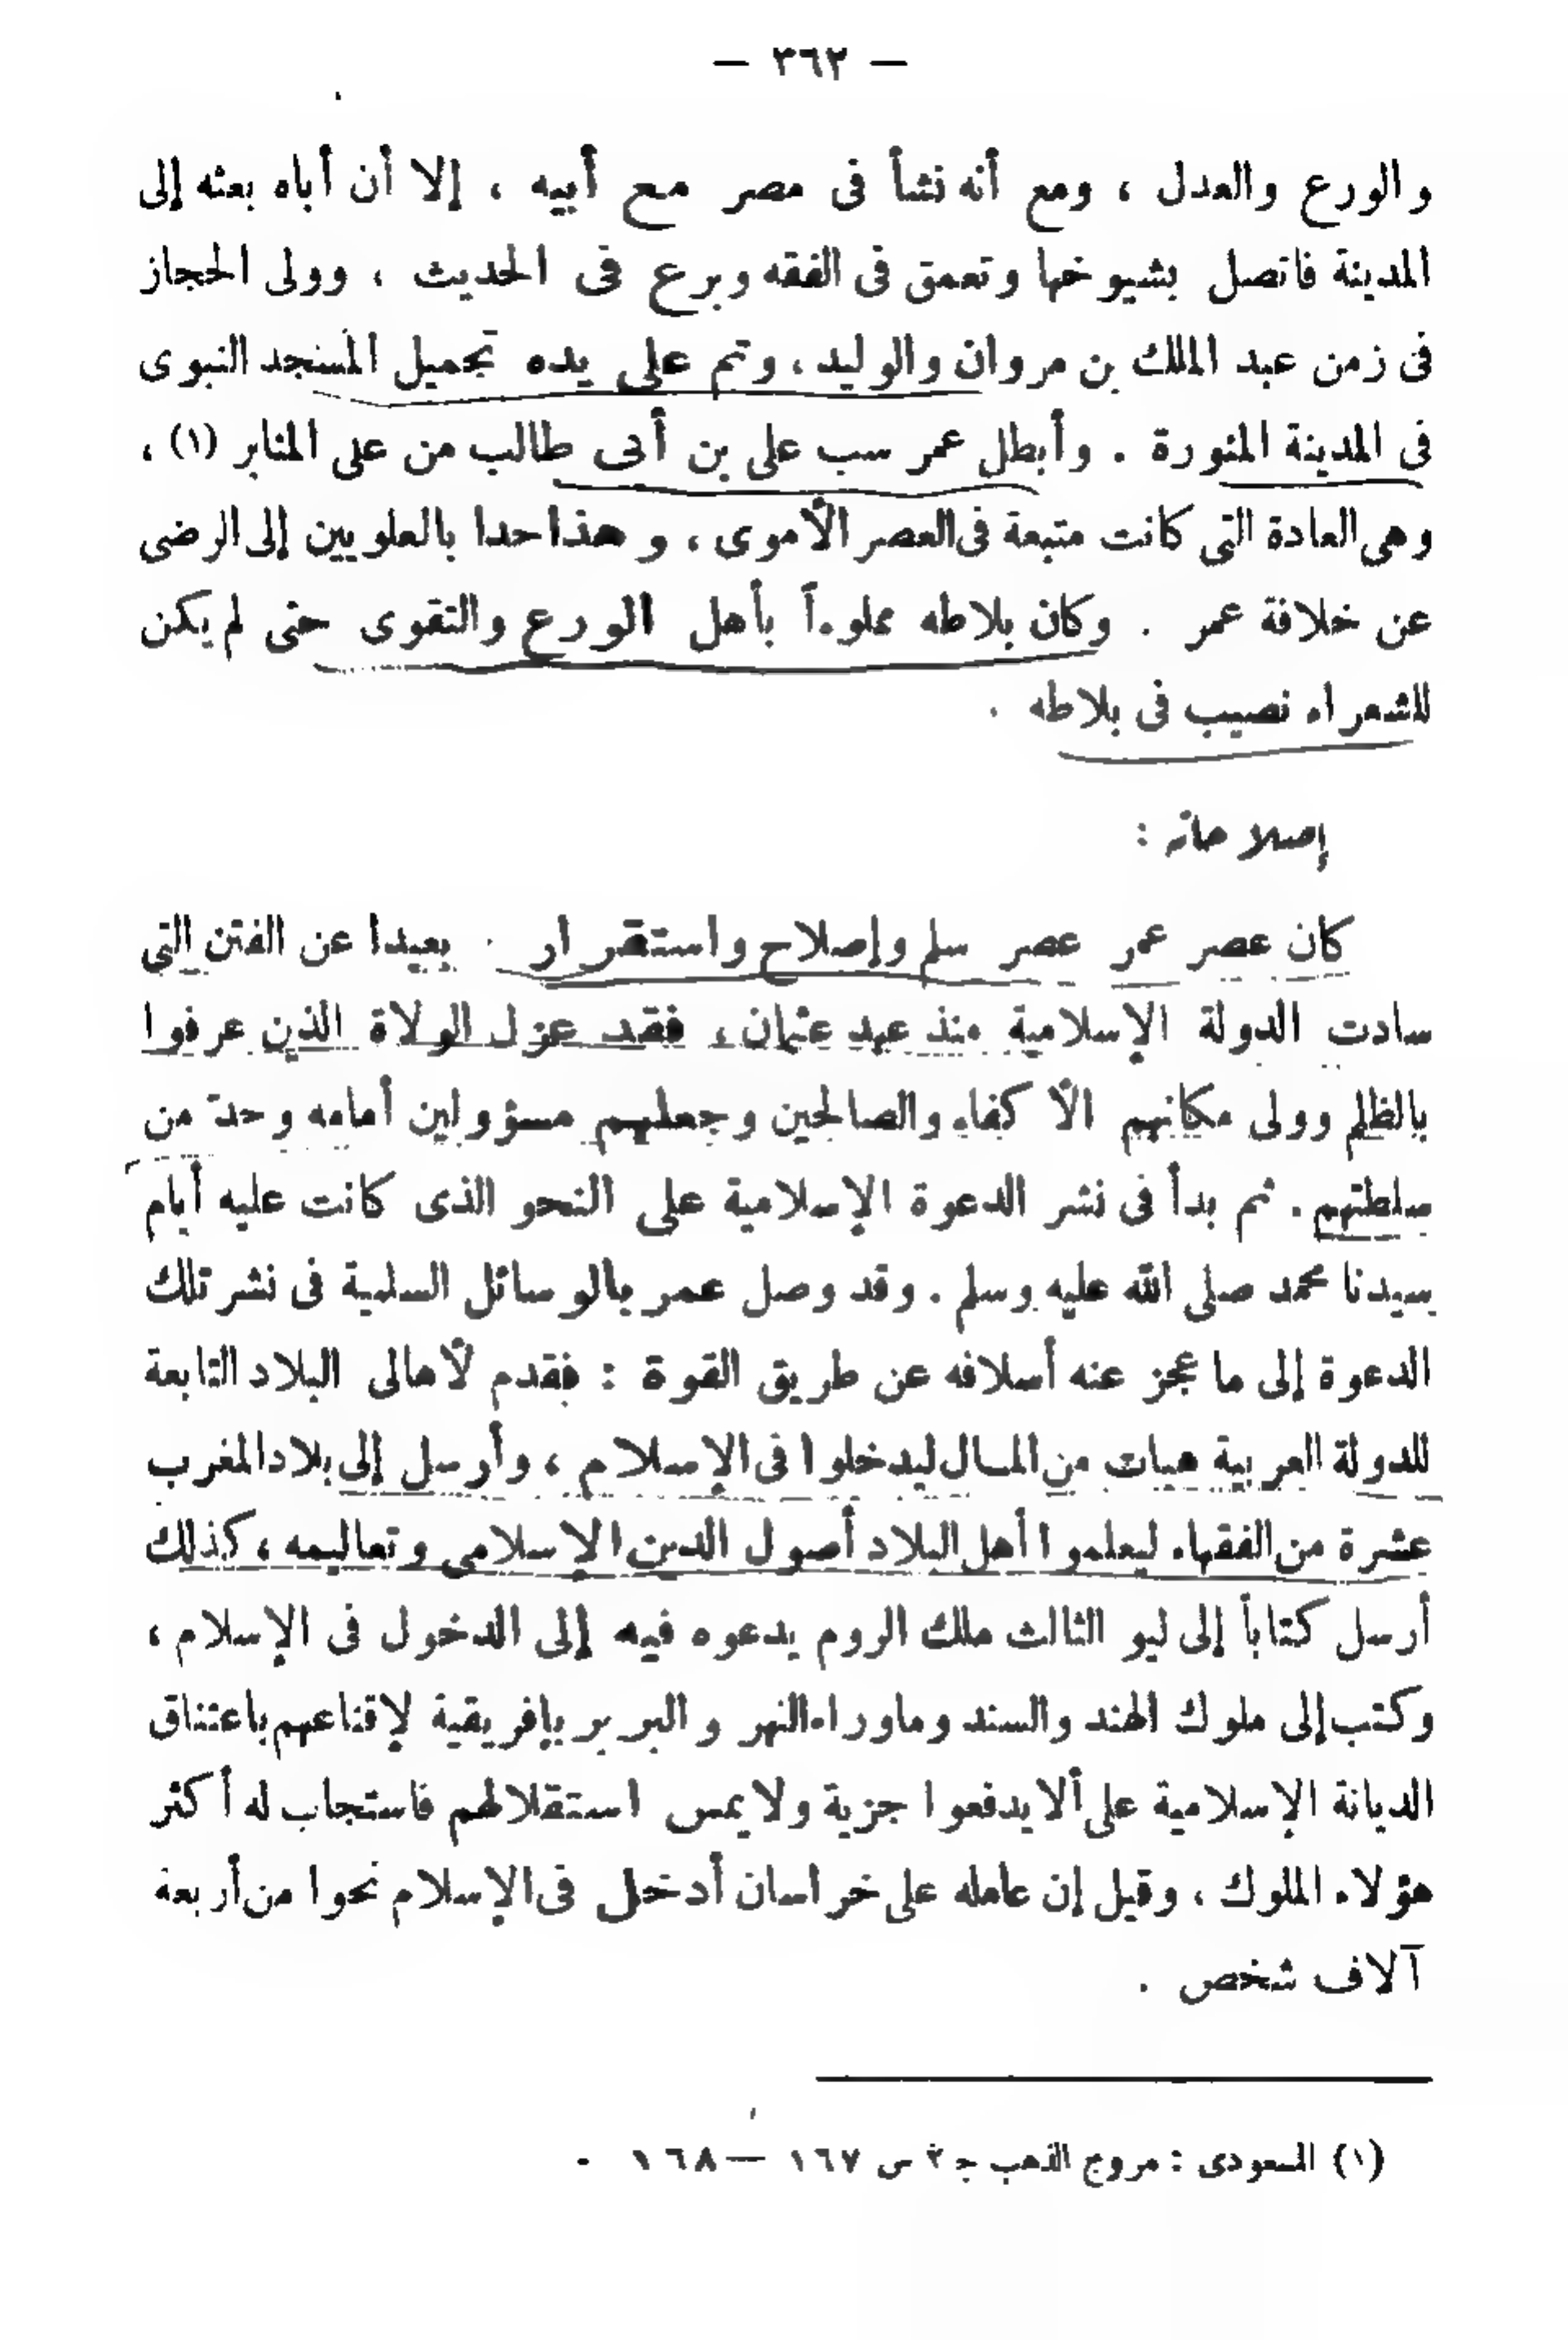 — ٣٦٢ —
والورع والعدل ، ومع أنه نشأ فى مصر مع أبيه ، إلا أن أباه بعثه إلى
المدينة فاتصل بشيوخها وتعمق فى الفقه وبرع فى الحديث ، وولى الحجاز
فى زمن عبد الملك بن مروان والوليد ، وتم على يده تجميل المسجد النبوى
فى المدينة المنورة . وأبطل عمر سب على بن أبى طالب من على المنابر (١) ،
وهى العادة التى كانت متبعة فى العصر الأموى ، وهذا حدا بالعلويين إلى الرضى
عن خلافة عمر . وكان بلاطه مملوءاً بأهل الورع والتقوى حتى لم يكن
للشعراء نصيب فى بلاطه .
إصلاحاته :
كان عصر عمر عصر سلم وإصلاح واستقرار . بعيدا عن الفتن التى
سادت الدولة الإسلامية منذ عهد عثمان ، فقد عزل الولاة الذين عرفوا
بالظلم وولى مكانهم الأكفاء والصالحين وجعلهم مسؤولين أمامه وحدّ من
سلطتهم . ثم بدأ فى نشر الدعوة الإسلامية على النحو الذى كانت عليه أيام
سيدنا محمد صلى الله عليه وسلم . وقد وصل عمر بالوسائل السلمية فى نشر تلك
الدعوة إلى ما عجز عنه أسلافه عن طريق القوة : فقدم لأهالى البلاد التابعة
للدولة العربية هبات من المال ليدخلوا فى الإسلام ، وأرسل إلى بلاد المغرب
عشرة من الفقهاء ليعلموا أهل البلاد أصول الدين الإسلامى وتعاليمه ، كذلك
أرسل كتاباً إلى ليو الثالث ملك الروم يدعوه فيه إلى الدخول فى الإسلام ،
وكتب إلى ملوك الهند والسند وما وراء النهر والبربر بإفريقية لإقناعهم باعتناق
الديانة الإسلامية على ألا يدفعوا جزية ولا يمس استقلالهم فاستجاب له أكثر
هؤلاء الملوك ، وقيل إن عامله على خراسان أدخل فى الإسلام نحوا من أربعة
آلاف شخص .
(١) المسعودى : مروج الذهب ج ٢ ص ١٦٧ — ١٦٨ .